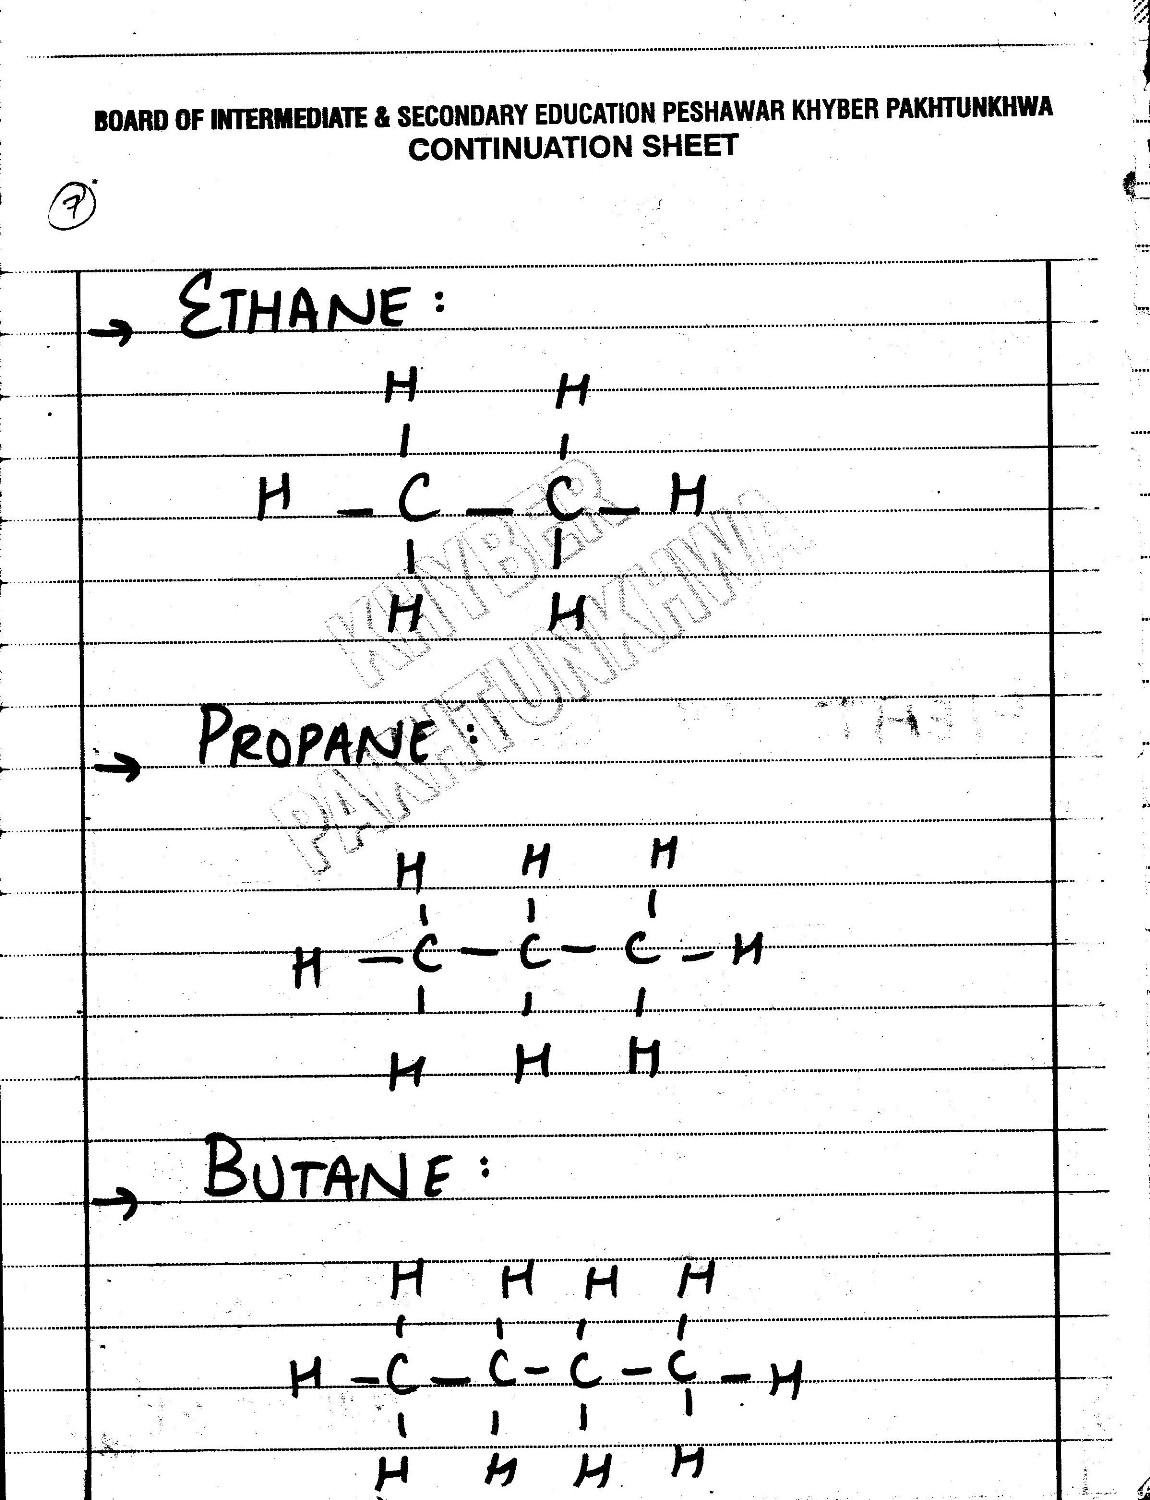 BOARD OF INTERMEDIATE & SECONDARY EDUCATION PESHAWAR KHYBER PAKHTUNKHWA
CONTINUATION SHEET
7
→ ETHANE :
H H
| |
H – C – C – H
| |
H H
KHYBER
PAKHTUNKHWA
→ PROPANE :
H H H
| | |
H – C – C – C – H
| | |
H H H
→ BUTANE :
H H H H
| | | |
H – C – C – C – C – H
| | | |
H H H H